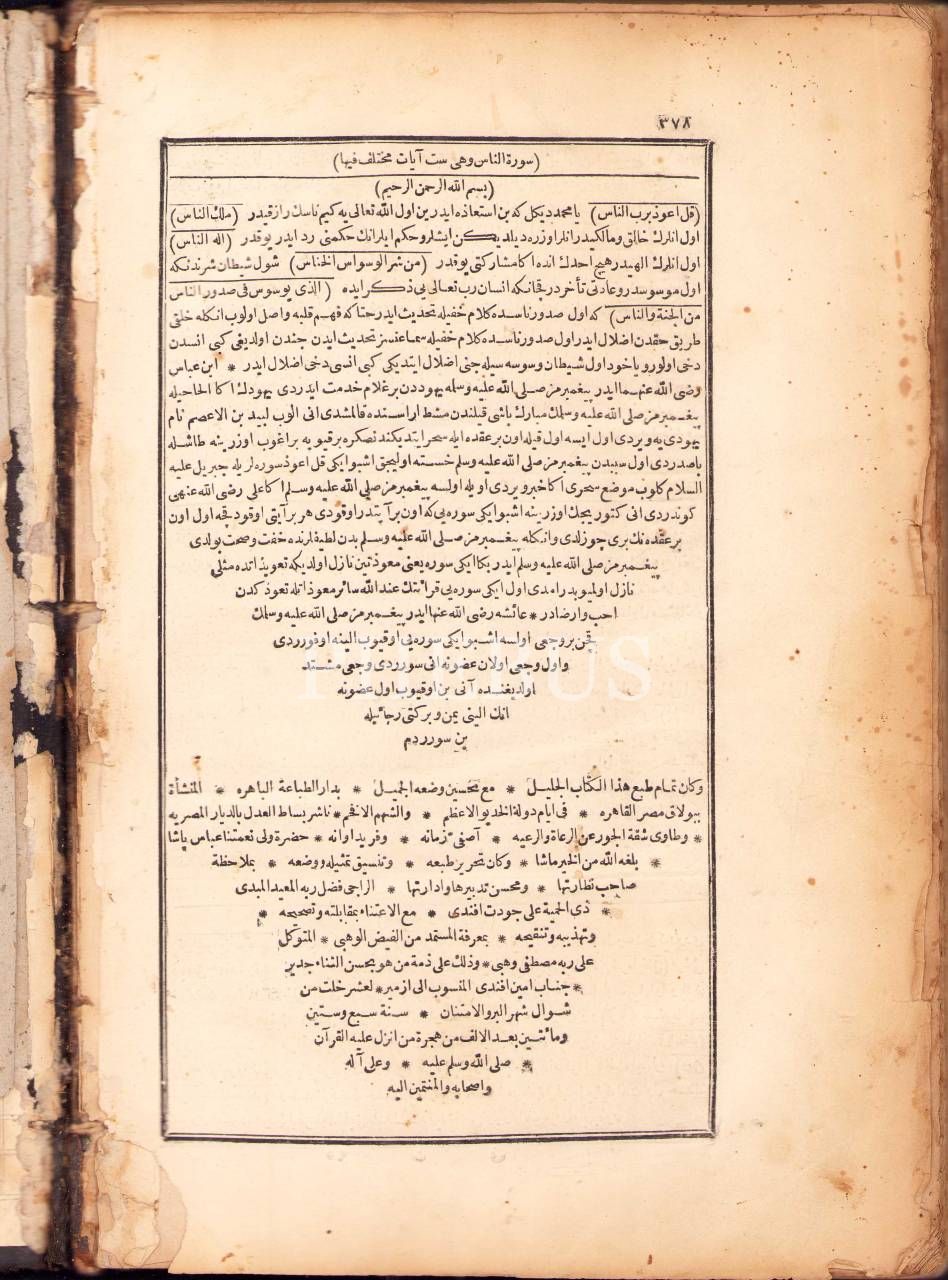 ٣٧٨
(سورة الناس وهى ست آيات مختلف فيها)
(بسم الله الرحمن الرحيم)
(قل اعوذ برب الناس) يا محمد ديكل كه بن استعاذه ايدرين اول الله تعالى يه كيم ناسك رازقيدر (ملك الناس)
اول انلرك خالق و مالكيدر انلر اوزره ديلديكن ايشلر و حكم ايلر انك حكمنى رد ايدر يوقدر (اله الناس)
اول انلرك الهيدر هيچ احدك انده اكا مشاركتى يوقدر (من شر الوسواس الخناس) شول شيطان شرندنكه
اول موسوسدر و عادتى تأخر در قچانكه انسان رب تعالى يى ذكر ايده (الذى يوسوس فى صدور الناس
من الجنة والناس) كه اول صدور ناسده كلام خفيله تحديث ايدر حتا كه فهم قلبه واصل اولوب انكله خلقى
طريق حقدن اضلال ايدر اول صدور ناسده كلام خفيله سماعسز تحديث ايدن جندن اولديغى كبى انسدن
دخى اولور و ياخود اول شيطان وسوسه سيله جنى اضلال ايتديكى كبى انسى دخى اضلال ايدر * ابن عباس
رضى الله عنهما ايدر پيغمبرمز صلى الله عليه وسلمه يهوددن بر غلام خدمت ايدردى يهودلك اكا الحاحيله
پيغمبرمز صلى الله عليه وسلمك مبارك باشى قيلندن مشط اراسنده قالمشدى انى الوب لبيد بن الاعصم نام
يهودى يه ويردى اول ايسه اول قيله اون بر عقده ايله سحر ايتديكندنصكره بر قيويه براغوب اوزرينه طاشله
باصدردى اول سببدن پيغمبرمز صلى الله عليه وسلم خسته اوليجق اشبو ايكى قل اعوذ سوره لريله جبريل عليه
السلام كلوب موضع سحرى اكا خبر ويردى اويله اولسه پيغمبرمز صلى الله عليه وسلم اكا على رضى الله عنهى
كوندردى انى كتوريجك اوزرينه اشبو ايكى سوره يى كه اون بر آيتدر اوقودى هر بر آيتى اوقودقجه اول اون
بر عقده نك برى چوزلدى وانكله پيغمبرمز صلى الله عليه وسلم بدن لطيفلرنده خفت و صحت بولدى
پيغمبرمز صلى الله عليه وسلم ايدر بكا ايكى سوره يعنى معوذتين نازل اولديكه تعويذاتده مثلى
نازل اولميوبدر امدى اول ايكى سوره يى قرائتك عند الله سائر معوذاتله تعوذ كدن
احب و ارضادر * عائشه رضى الله عنها ايدر پيغمبرمز صلى الله عليه وسلمك
قچن بر وجعى اولسه اشبو ايكى سوره يى اوقيوب الينه اوفوردى
و اول وجعى اولان عضونه انى سوردى وجعى مشتد
اولديغنده آنى بن اوقيوب اول عضونه
انك الينى يمن و بركتى رجائيله
بن سوردم
وكان تمام طبع هذا الكتاب الجليل * مع تحسين وضعه الجميل * بدار الطباعة الباهره * المنشأة
ببولاق مصر القاهره * فى ايام دولة الخديو الاعظم * والشهم الافخم * ناشر بساط العدل بالديار المصريه
* وطاوى شقة الجور عن الرعاة والرعيه * آصفىّ زمانه * وفريد اوانه * حضرة ولى نعمتنا عباس پاشا
* بلغه الله من الخير ما شا * وكان تحرير طبعه * وتنسيق تمثيله ووضعه * بملاحظة
صاحب نظارتها * ومحسن تدبيرها وادارتها * الراجى فضل ربه المعيد المبدى
* ذى الحمية على جودت افندى * مع الاعتناء بمقابلته وتصحيحه *
وتهذيبه وتنقيحه * بمعرفة المستمد من الفيض الوهبى * المتوكل
على ربه مصطفى وهبى * وذلك على ذمة من هو بحسن الثناء جدير
* جناب امين افندى المنسوب الى ازمير * لعشر خلت من
شوال شهر البر والامتنان * سنة سبع وستين
ومائتين بعد الالف من هجرة من انزل عليه القرآن
* صلى الله وسلم عليه * وعلى آله
واصحابه والمنتمين اليه